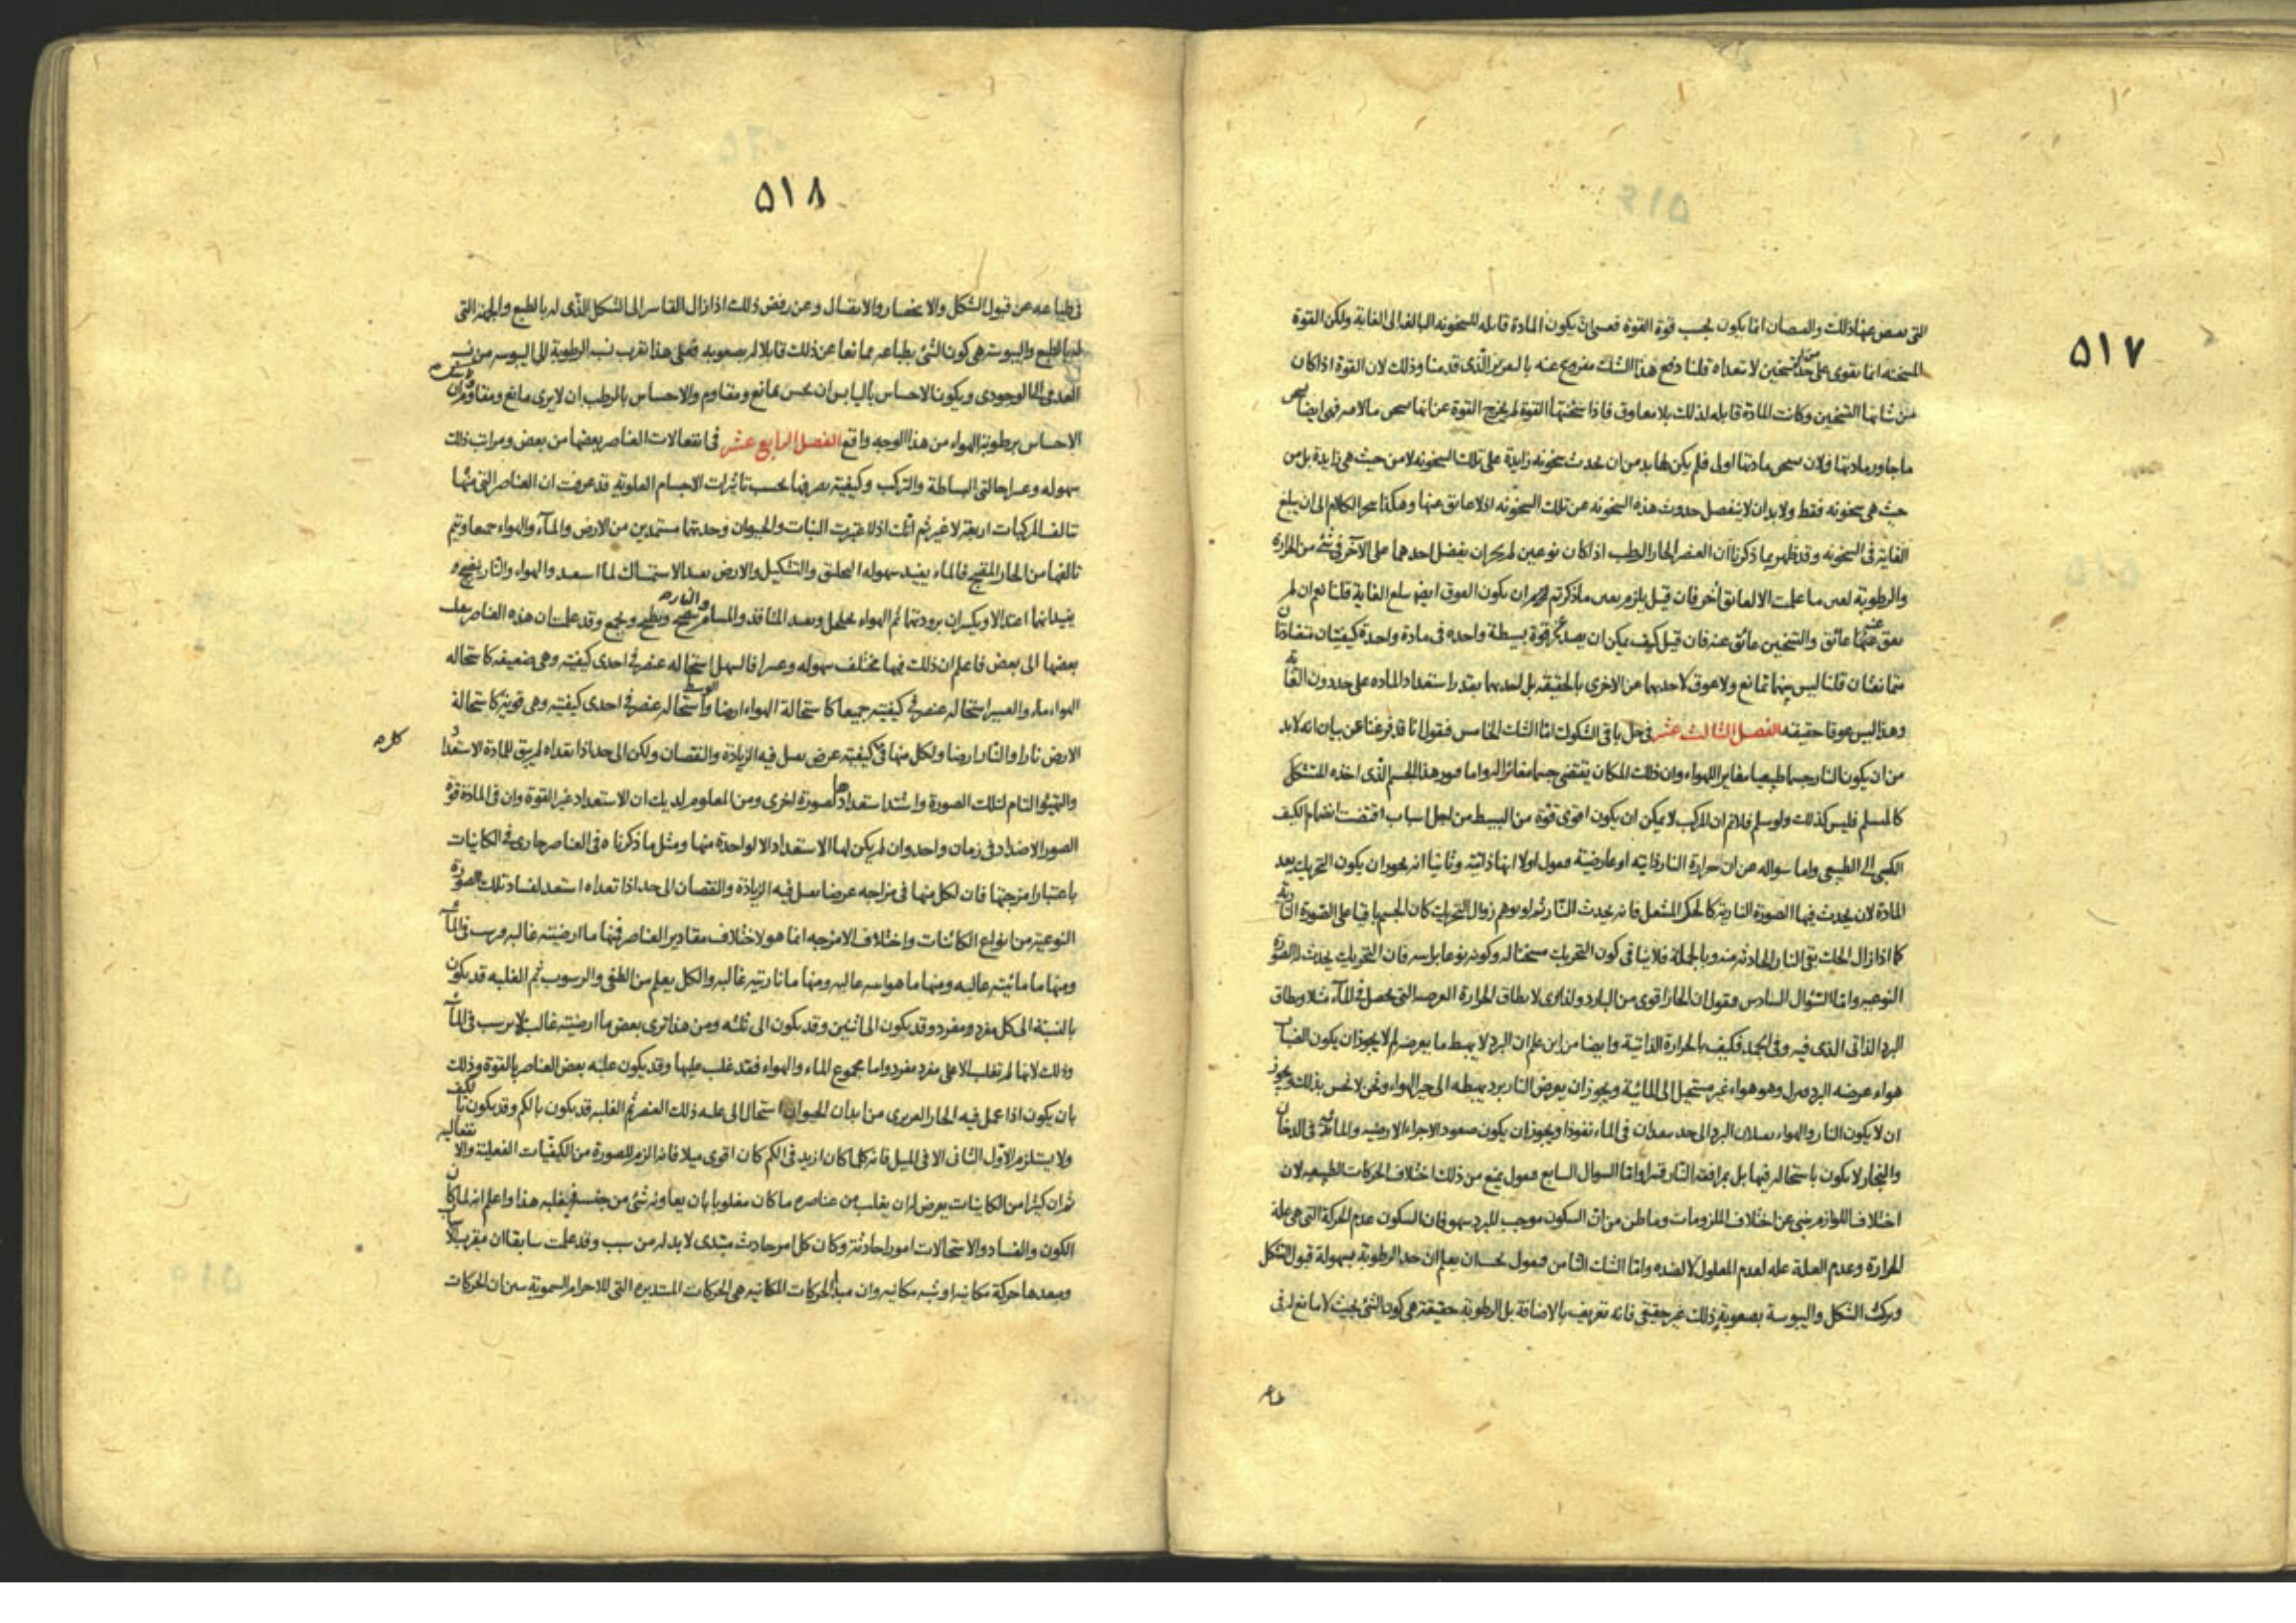 ٥١٧
التى عنها ذلك والنقصان انما يكون بحسب قوة القوة فعسى ان يكون المادة قابله للسخونه البالغه الى الغاية ولكن القوة
المسخنه انما تقوى على حد من التسخين لا تتعداه قلنا دفع هذا الشك مفروغ عنه الذى قدمنا وذلك لان القوة اذا كان
من شانها التسخين وكانت المادة قابله لذلك بلا معاوق فاذا سخنتها القوة لم يخرج القوة عن انها فهى ايضا
ما جاور مادتها فلان مادتها اولى فلم يكن لها بد من ان يحدث سخونه زايدة على تلك السخونه لا من حيث هى زايدة بل من
حيث هى سخونه فقط ولا بد ان لا ينفصل حدوث هذه السخونه عن تلك السخونه اذ لا عايق عنها وهكذا الكلام الى ان يبلغ
الغاية فى السخونه وقد ظهر بما ذكرنا ان العنصر الحار الرطب اذا كان نوعين لم يجز ان يفضل احدهما على الآخر فى شئ من الحرارة
والرطوبة ما علمت الا لعائق آخر فان قيل يلزم ما ذكرتم ان يكون الغاية قلنا نعم ان لم
عنها عائق والتسخين عائق عنه فان قيل كيف يمكن ان عن قوة بسيطة واحده فى مادة واحدة كيفيتان متضادتان
متمانعتان قلنا ليس بينهما تمانع ولا عوق لاحديهما عن الاخرى بالحقيقه بل استعداد الماده على حدوث الثانية
وهذا ليس عوقا حقيقه الفصل الثالث عشر فى حل باقى الشكوك اما الشك الخامس فنقول انا قد فرغنا عن بيان انه لا بد
من ان يكون النار جسما طبيعيا مغاير اللهواء وان ذلك المكان يقتضى جسما مغائر الهواء اما هذا الجسم الذى اخذه المتشكل
كالمسلم فليس كذلك ولو سلم فلا ثم ان المركب لا يمكن ان يكون اقوى قوة من البسيط من اجل اسباب اقتضت انضمام الكيف
الكسبى الى الطبيعى واما سواله عن ان حرارة النار ذاتيه او عارضية فنقول اولا انها ذاتية وثانيا انه يجوز ان يكون التحريك يعد
المادة لان يحدث فيها الصورة النارية كالحك المشعل فانه يحدث النار ثم لو توهم زوال التحريك كان الجسم باقيا على الصورة النارية
كما اذا زال الحك بقى النار الحادثه منه وبالجملة فلا ينافى كون التحريك مسخنا له وكونه نوعا براسه فان التحريك يحدث الصورة
النوعيه واما السؤال السادس فنقول ان الحار اقوى من البارد ولذا لا يطاق الحرارة التى تحصل فى الماء مثلا ويطاق
البرد الذاتى الذى فيه وفى الجمد فكيف بالحرارة الذاتية وايضا من اين علم ان البرد لا يهبط ما يعرضه لم لا يجوز ان يكون الضباب
هواء عرضه البرد وهو هواء غير مستحيل الى المائية ويجوز ان يعرض النار برد يهبطه الى حيز الهواء ونحن لا نحس بذلك ويجوز
ان لا يكون النار والهواء البرد الى حد فى الماء نفوذا ويجوز ان يكون صعود الاجزاء الارضيه والمائية فى الدخان
والبخار لا يكون باستحاله فيها بل بمرافقة النار قسرا واما السوال السابع فنقول يمنع من ذلك اختلاف الحركات الطبيعيه لان
اختلاف اللوازم ينبى عن اختلاف الملزومات وما ظن من ان السكون موجب للبرد سهو فان السكون عدم الحركة التى هى علة
الحرارة وعدم العلة علة لعدم المعلول لا لضده واما الشك الثامن فنقول يجب ان يعلم ان حد الرطوبة بسهولة قبول الشكل
وترك الشكل واليبوسة بصعوبة ذلك غير حقيقى فانه تعريف بالاضافة بل الرطوبة حقيقة هى كون الشئ بحيث لا مانع له فى
طباعه
٥١٨
فى طباعه عن قبول الشكل والانحصار والاتصال وعن رفض ذلك اذا زال القاسر الى الشكل الذى له بالطبع والجهة التى
له بالطبع واليبوسة هى كون الشئ بطباعه ممانعا عن ذلك قابلا له بصعوبه فعلى هذا تقرب نسبة الرطوبة الى اليبوسه من نسبة
العدمى الى الوجودى ويكون الاحساس باليابس ان يحس بمانع ومقاوم والاحساس بالرطب ان لا يرى مانع ومقاوم
الاحساس برطوبة الهواء من هذا الوجه واقع الفصل الرابع عشر فى انفعالات العناصر بعضها من بعض ومراتب ذلك
سهوله وعسرا حالتى البساطة والتركب وكيفيته تصرفها بحسب تاثيرات الاجسام العلوية قد عرفت ان العناصر التى منها
تتالف المركبات اربعة لا غير ثم انك اذا اعتبرت النبات والحيوان وجدتهما مستمدين من الارض والماء والهواء جميعا ويتم
تالفها من الحار المنضج فالماء يفيد سهوله التخلق والتشكيل والارض الاستمساك لما استعد والهواء والنار
يفيدانها اعتدالا ويكسران برودتهما ثم الهواء يخلخل المنافذ والمسام والنار ينضج ويطبخ ويجمع وقد علمت ان هذه العناصر
بعضها الى بعض فاعلم ان ذلك فيها مختلف سهوله وعسرا فالسهل استحاله عنصر فى احدى كيفيته وهى ضعيفه كاستحاله
الهواء ماء والعسير استحاله عنصر فى كيفيته جميعا كاستحالة الهواء ارضا والوسط استحاله عنصر فى احدى كيفيته وهى قوية كاستحالة
الارض نارا والنار ارضا ولكل منها فى كيفيته عرض يقبل فيه الزيادة والنقصان ولكن الى حد اذا تعداه لم يبق للمادة الاستعداد
كله
والتهيؤ التام لتلك الصورة واشتد استعدادها لصورة اخرى ومن المعلوم لديك ان الاستعداد غير القوة وان فى المادة قوة
الصور الاضداد فى زمان واحد وان لم يكن لها الاستعداد الا لواحدة منها ومثل ما ذكرناه فى العناصر جارى فى الكائنات
باعتبار امزجتها فان لكل منها فى مزاجه عرضا يقبل فيه الزيادة والنقصان الى حد اذا تعداه استعد لفساد تلك الصورة
النوعية من انواع الكائنات واختلاف الامزجه انما هو لاختلاف مقادير العناصر فمنها ما ارضيته غالبه ويرسب فى الماء
ومنها ما مائيته غالبه ومنها ما هوائيته غالبه ومنها ما ناريته غالبه والكل يعلم من الطفو والرسوب ثم الغلبه قد يكون
بالنسبة الى كل مفرد ومفرد وقد يكون الى اثنين وقد يكون الى ثلثه ومن هذا ترى بعض ما ارضيته غالبة لا يرسب فى الماء
وذلك لانها لم تغلب الا على مفرد مفرد واما مجموع الماء والهواء فقد غلب عليها وقد يكون غلبه بعض العناصر بالقوة وذلك
بان يكون اذا عمل فيه الحار الغريزى من ابدان الحيوان استحال الى غلبه ذلك العنصر ثم الغلبه قد يكون بالكم وقد يكون بالكيف
ولا يستلزم الاول الثانى الا فى الميل فانه كلما كان ازيد فى الكم كان اقوى ميلا فانه الزم للصورة من الكيفيات الفعلية والانفعاليه
ثم ان كثيرا من الكائنات يعرض له ان يغلب من عناصره ما كان مغلوبا بان يعاونه شئ من جنسه فيغلبه هذا واعلم انه لما كان
الكون والفساد والاستحالات امورا حادثة وكان كل امر حادث مبتدى لا بد له من سبب وقد علمت سابقا ان مقرب الاسباب
ومبعدها حركة مكانيه او شبه مكانيه وان مبدأ الحركات المكانيه هى الحركات المستديره التى للاجرام السموية الحركات